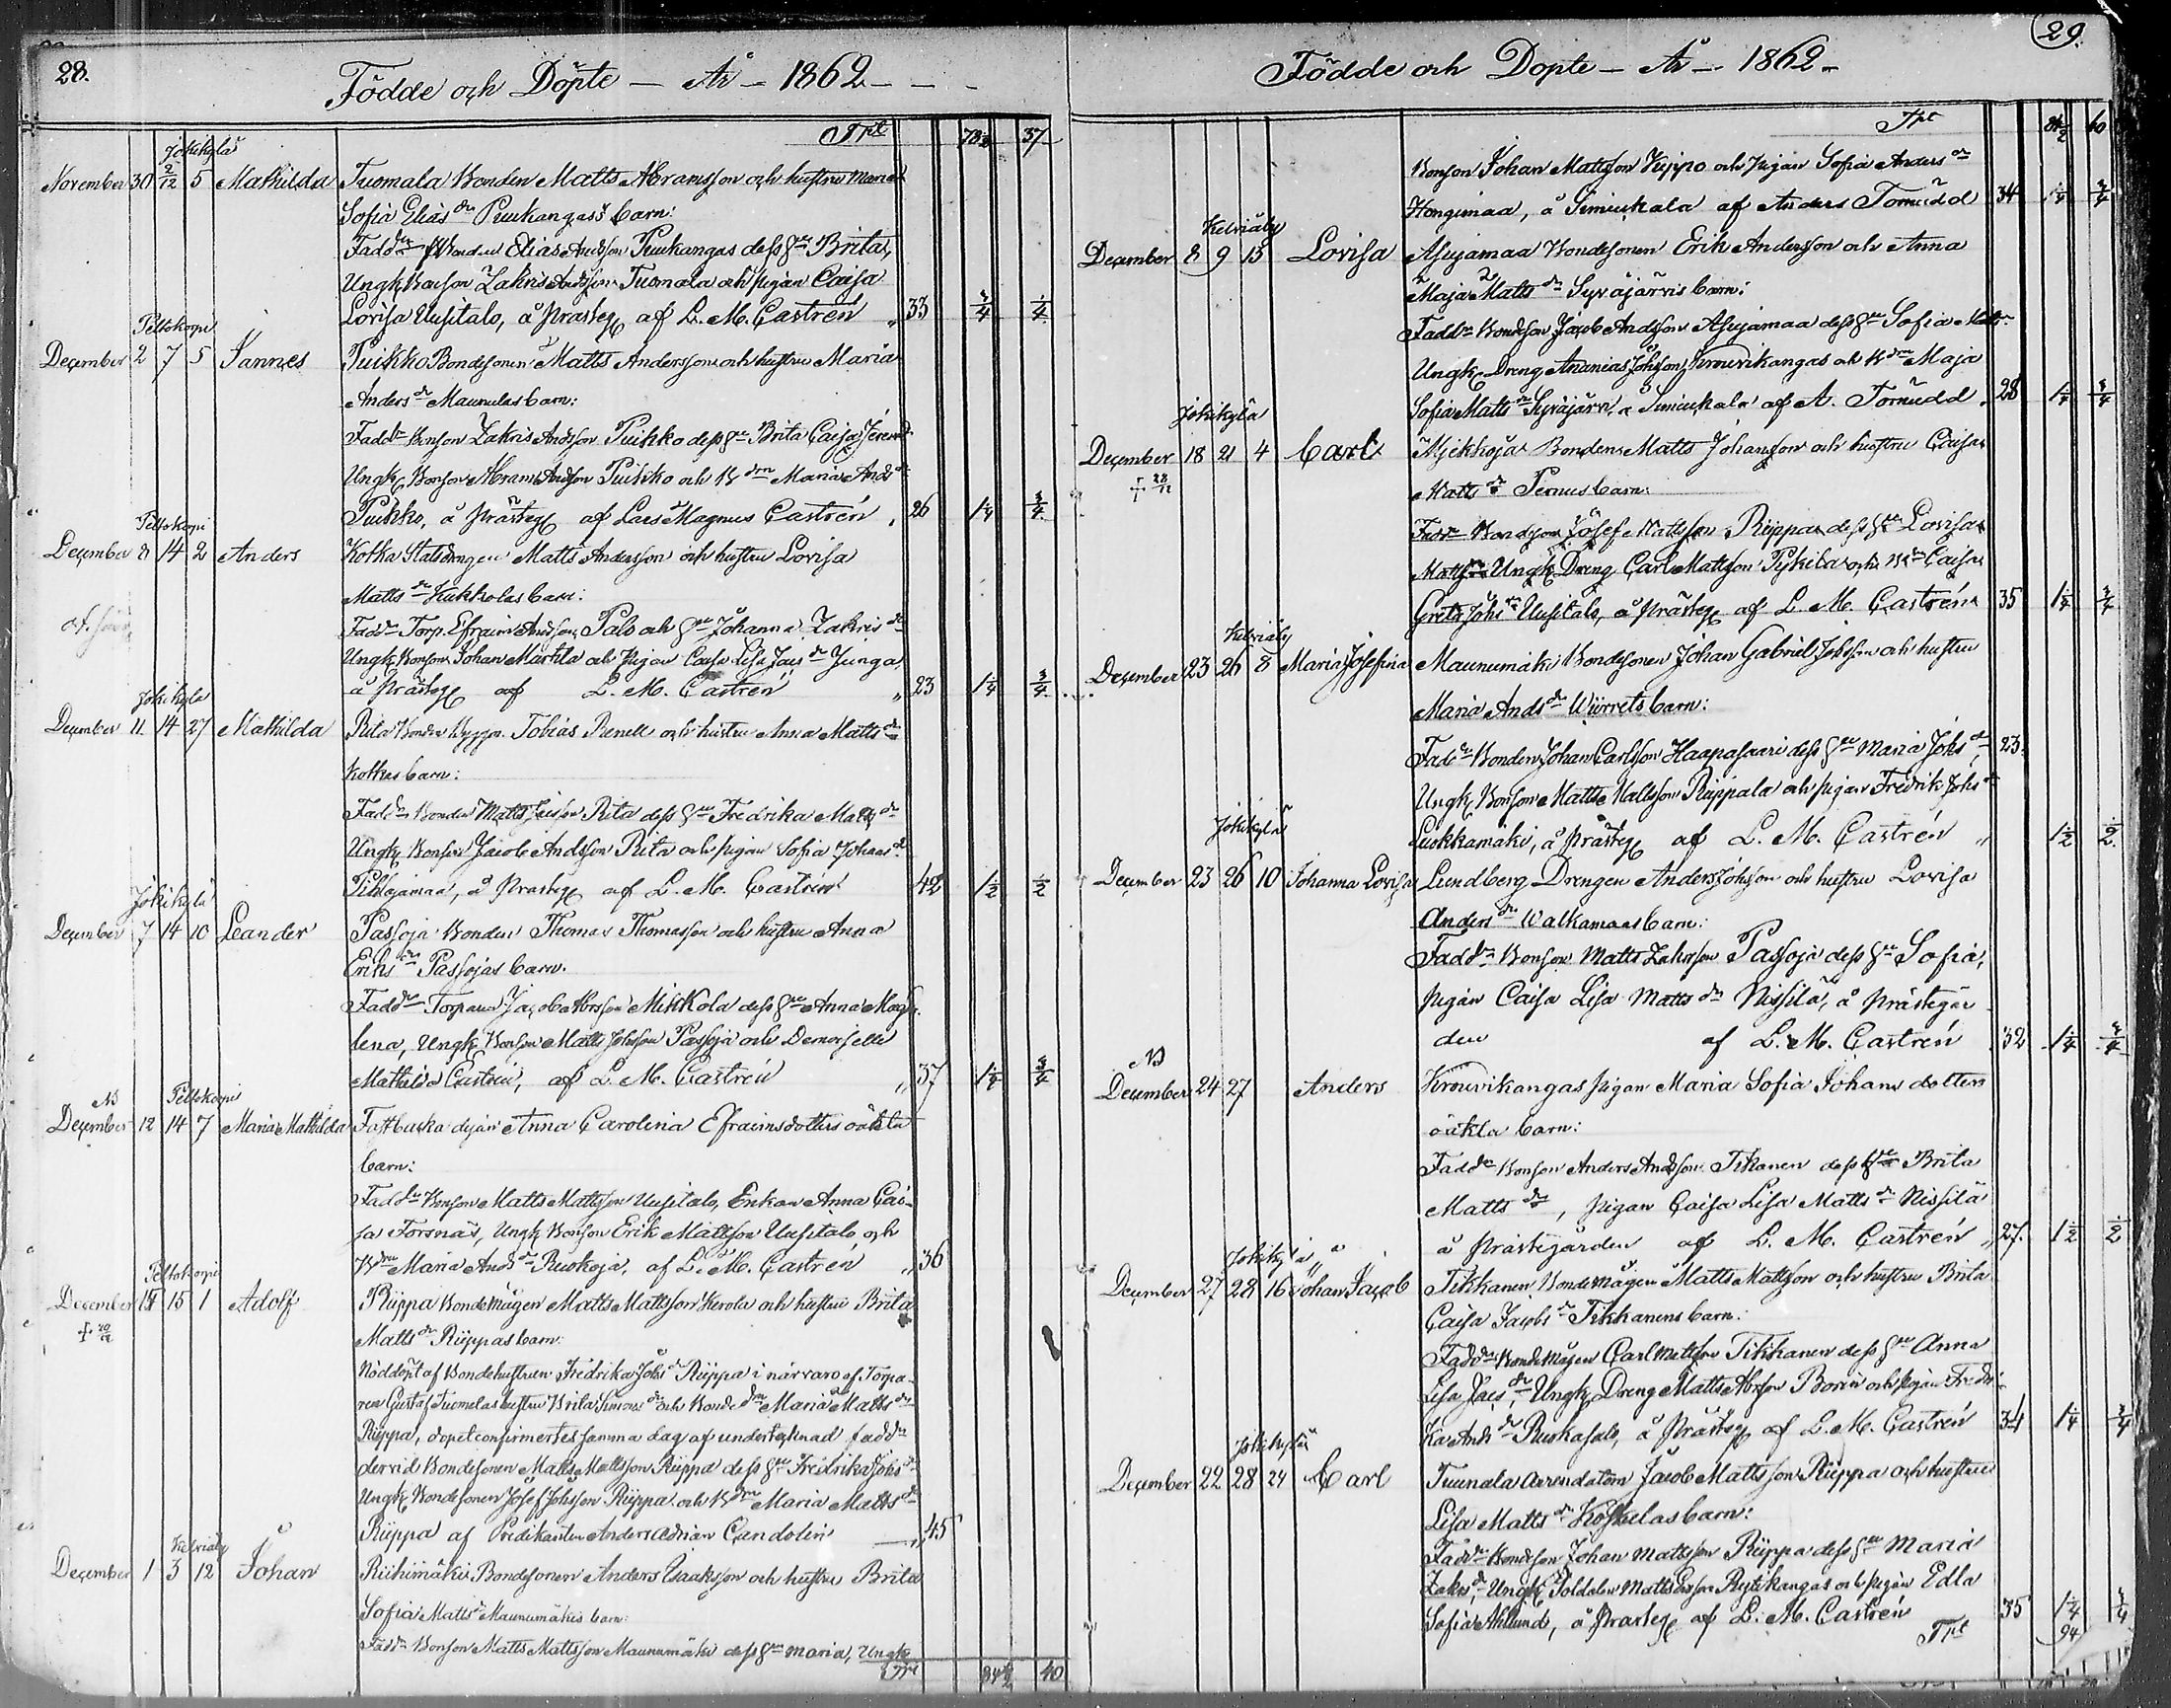 28.
Födde och Döpte - År - 1862 -
Tpt 78 1/2 37
Jokikylä
November 30 2/12 5 Mathilda Tuomala Bonden Matts Abramsson och hustru Maria
Sofia Elias dr Puukangas's barn:
Fadd Bonden Elias Andsson Puukangas dess hu Brita,
Ungk Bonson Zakris Andsson Tuomala och pigan Caisa
Lovisa Uusitalo, å prästeg af L. M. Castrén „ 33 3/4 1/4
Peltokorpi
December 2 7 5 Jannes Puikko Bondsonen Matts Andersson och hustru Maria
Anders dr Maunulas barn:
Fadd Bonson Zakris Andsson Puikko dess hu Brita Caisa
Ungk Bonson Abram Andson Puikko och B drn Maria Ands dr
Puikko, å Prästeg af Lars Magnus Castrén „ 26 1 1/4 3/4
Peltokorpi
December 8 14 2 Anders Kotka Statsdrengen Matts Andersson och hustru Lovisa
Matts dr Kukkolas barn:
Fadd Torp. Efraim Andsson Palo och hu Johanna Zakris dr
Ungk Bonson Johan Marttila och pigan Caisa Lisa Jacs dr Junga
å Prästeg af L. M. Castrén „ 23 1 1/4 3/4
Jokikylä
December 11 14 27 Mathilda Rita Bonde Tobias Renell och hustru Anna Matts dr
Kotkas barn:
Fadd Bonden Matts Rita dess hu Fredrika Matts dr
Ungk Bonson Jacob Andsson Rita och pigan Sofia Johans dr
Pihlajamaa, å Prästeg af L. M. Castrén 42 1 1/2 1/2
Jokikylä
December 7 14 10 Leander Passoja Bonden Thomas Thomasson och hustru Anna
Eriks dr Passojas barn.
Fadd Torparen Jacob Abrsson Mikkola dess hu Anna Magda
lena, Ungk Bonson Matts Johsson Passoja och Demoiselle
Mathilda Castrén, af L. M. Castrén „ 37 1 1/4 3/4
NB Peltokorpi
December 12 14 7 Maria Mathilda Anna Carolina Efraimsdotters oäkta
barn:
Fadd Bonson Matts Mattsson Uusitalo, Enkan Anna Cai-
sa Forsnäs, Ungk Bonson Erik Mattson Uusitalo och
B drn Maria Ands dr Ruokoja, af L. M. Castrén „ 36
Peltokorpi
December 15 1 Adolf Riippa Bondemågen Matts Mattsson Kerola och hustru Brita
Matts dr Riippas barn:
Nöddöpt af Bondehustrun Fredrika Johs dr Riippa i närvaro af Torpa-
ren Gustaf Tuomelas hustru Brita Simons dr och Bonde drn Maria Matts dr
Riippa, dopet confirmertes samma dag af undertecknad fadd
dervid Bondesonen Matts Mattsson Riippa dess hu Fredrika Johs dr
Ungk Bondesonen Josef Johsson Riippa och B drn Maria Matts dr
Riippa af Predikanten Anders Adrian Candolin — „ 45
Kelviåby
December 1 3 12 Johan Riihimäki Bondsonen Anders Isaaksson och hustru Brita
Sofia Matts dr Maunumäkis barn:
Fadd Bonson Matts Mattsson Maunumäki dess hu Maria, Ungk
Tpt 84 1/2 40
29.
Födde och Döpte - År - 1862 -
Tpt 84 1/2 40
Bonson Johan Mattson Vippo och pigan Sofia Anders dr
Hongimaa, å Simiukala af Anders Törnudd 34 1 1/4 3/4
Kelviåby
December 8 9 13 Lovisa Asujamaa Bondsonen Erik Andersson och Anna
Maja Matts dr Syväjärvis barn:
Fadd Bondson Jacob Andsson Asujamaa dess hu Sofia Matts dr
Ungk Dreng Ananias Johsson Krouvikangas och B drn Maja
Sofia Matts dr Syväjärvi, å Simiukala af A. Törnudd „ 28 1 1/4 3/4
Jokikylä
December 18 21 4 Carl Bonden Matts Johansson och hustru Caisa
+ 28/12 Matts dr Pernus barn:
Fadd Bondson Josef Mattsson Riippa dess hu Lovisa
Matts dr Ungk Dreng Carl Mattson Pyhilä och B drn Caisa
Greta Johs dr Uusitalo, å Prästeg af L. M. Castrén 35 1 1/4 3/4
Kelviåby
December 23 26 8 Maria Josefina Maunumäki Bondesonen Johan Gabriel Johsson och hustru
Maria Ands dr Wiirrets barn:
Fadd Bonden Johan Carlsson Haapasaari dess hu Maria Johs dr, 23.
Ungk Bonson Matts Mattsson Riippala och pigan Fredrik Johs dr
Luokkamäki, å prästeg af L. M. Castrén „ 1 1/2 1/2
Jokikylä
December 23 26 10 Johanna Lovisa Lundberg Drengen Anders Johsson och hustru Lovisa
Anders dr Walkamaas barn:
Fadd Bonson Matts Zakrsson Passoja dess hu Sofia,
pigan Caisa Lisa Matts dr Nissilä, å prästegår
den af L. M. Castrén 32 1 1/4 3/4
NB
December 24 27 Anders Krouvikangas pigan Maria Sofia Johans dotters
oäkta barn:
Fadd Bonson Anders Andsson Tikanen dess hu Brita
Matts dr, pigan Caisa Lisa Matts dr Nissilä
å Prästegården af L. M. Castrén „ 27. 1 1/2 1/2
Jokikylä
December 27 28 16 Johan Jacob Tikkanen Bondemågen Matts Mattson och hustru Brita
Caisa Jacobs dr Tikkanens barn:
Fadd Bondemågen Carl Mattson Tikkanen dess hu Anna
Lisa Jacs dr, Ungk Dreng Matts Abrsson Borin och pigan Fredri-
ka Ands dr Ruokasalo, å Prästeg af L. M. Castrén 34 1 1/4 3/4
Jokikylä
December 22 28 24 Carl Tuunala Arrendatorn Jacob Mattsson Riippa och hustru
Lisa Matts dr Koskelas barn:
Fadd Bondson Johan Mattsson Riippa dess hu Maria
Zakrs dr, Ungk Soldaten Matts Rytikangas och pigan Edla
Sofia Ahlund, å Prästeg af L. M. Castrén 35 1 1/4 3/4
Tpt 94